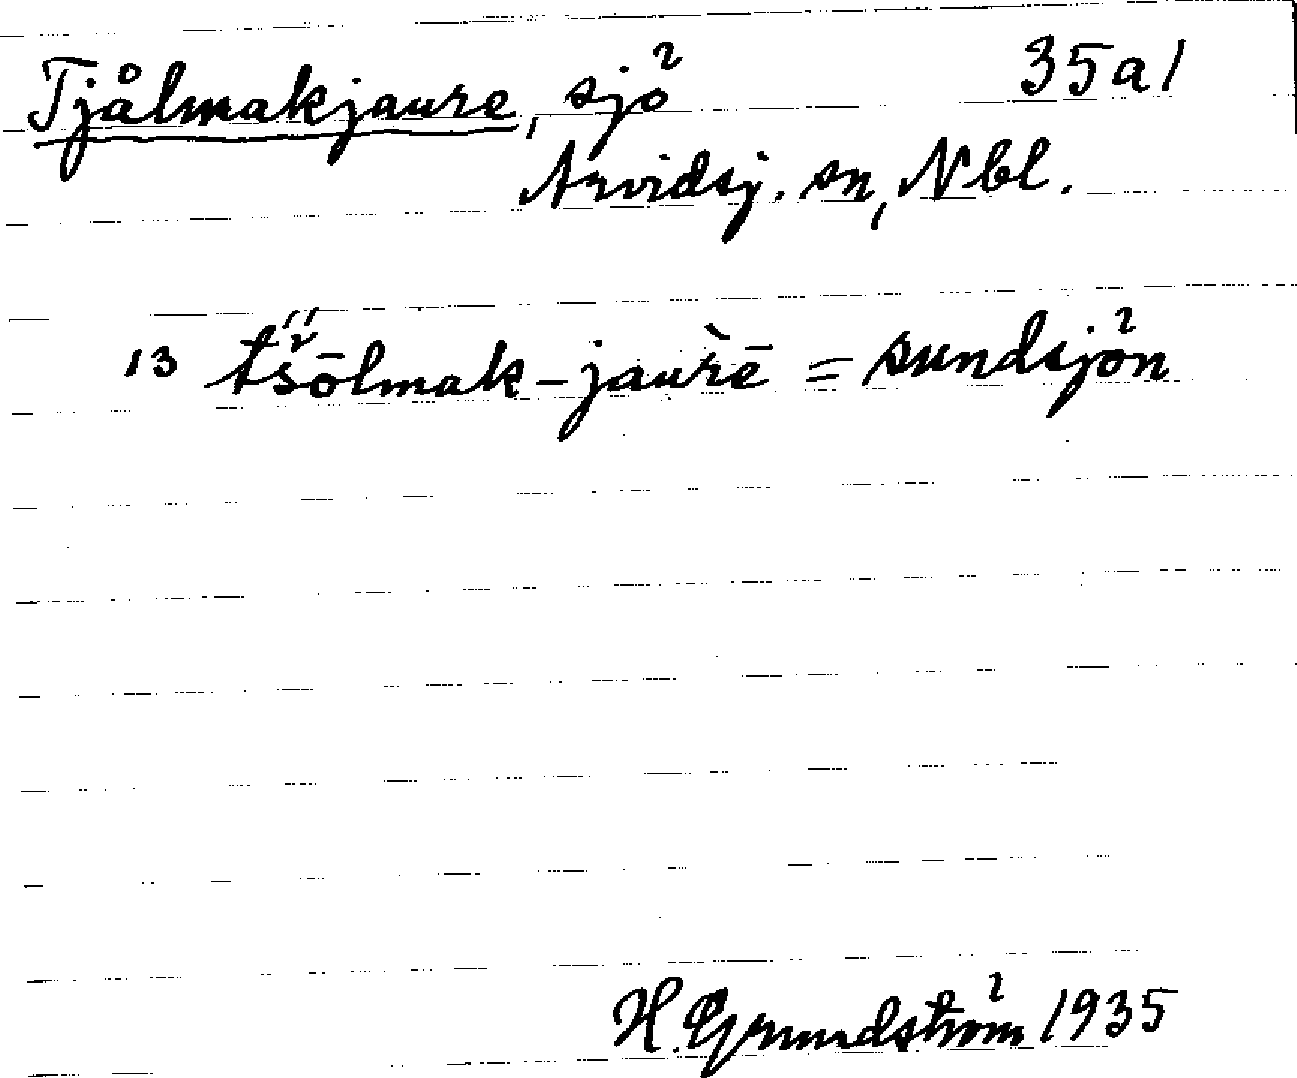 Tjålmakjaure, sjö 35a1
Arvidsj. sn, Nbl.
13 tš̋ōlmak-jaùrē = sundsjön
H. Grundström 1935